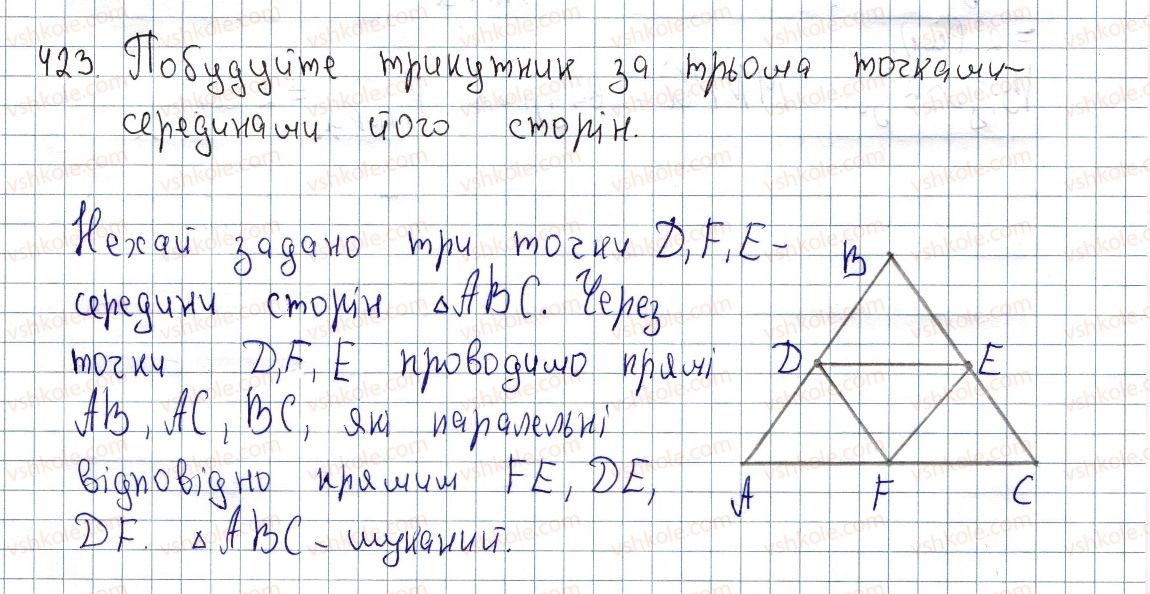 423. Побудуйте трикутник за трьома точками-
серединами його сторін.
Нехай задано три точки D, F, E -
середини сторін △ABC. Через
точки D, F, E проводимо прямі
AB, AC, BC, які паралельні
відповідно прямим FE, DE,
DF. △ABC - шуканий.
B
D E
A F C
vshkole.com